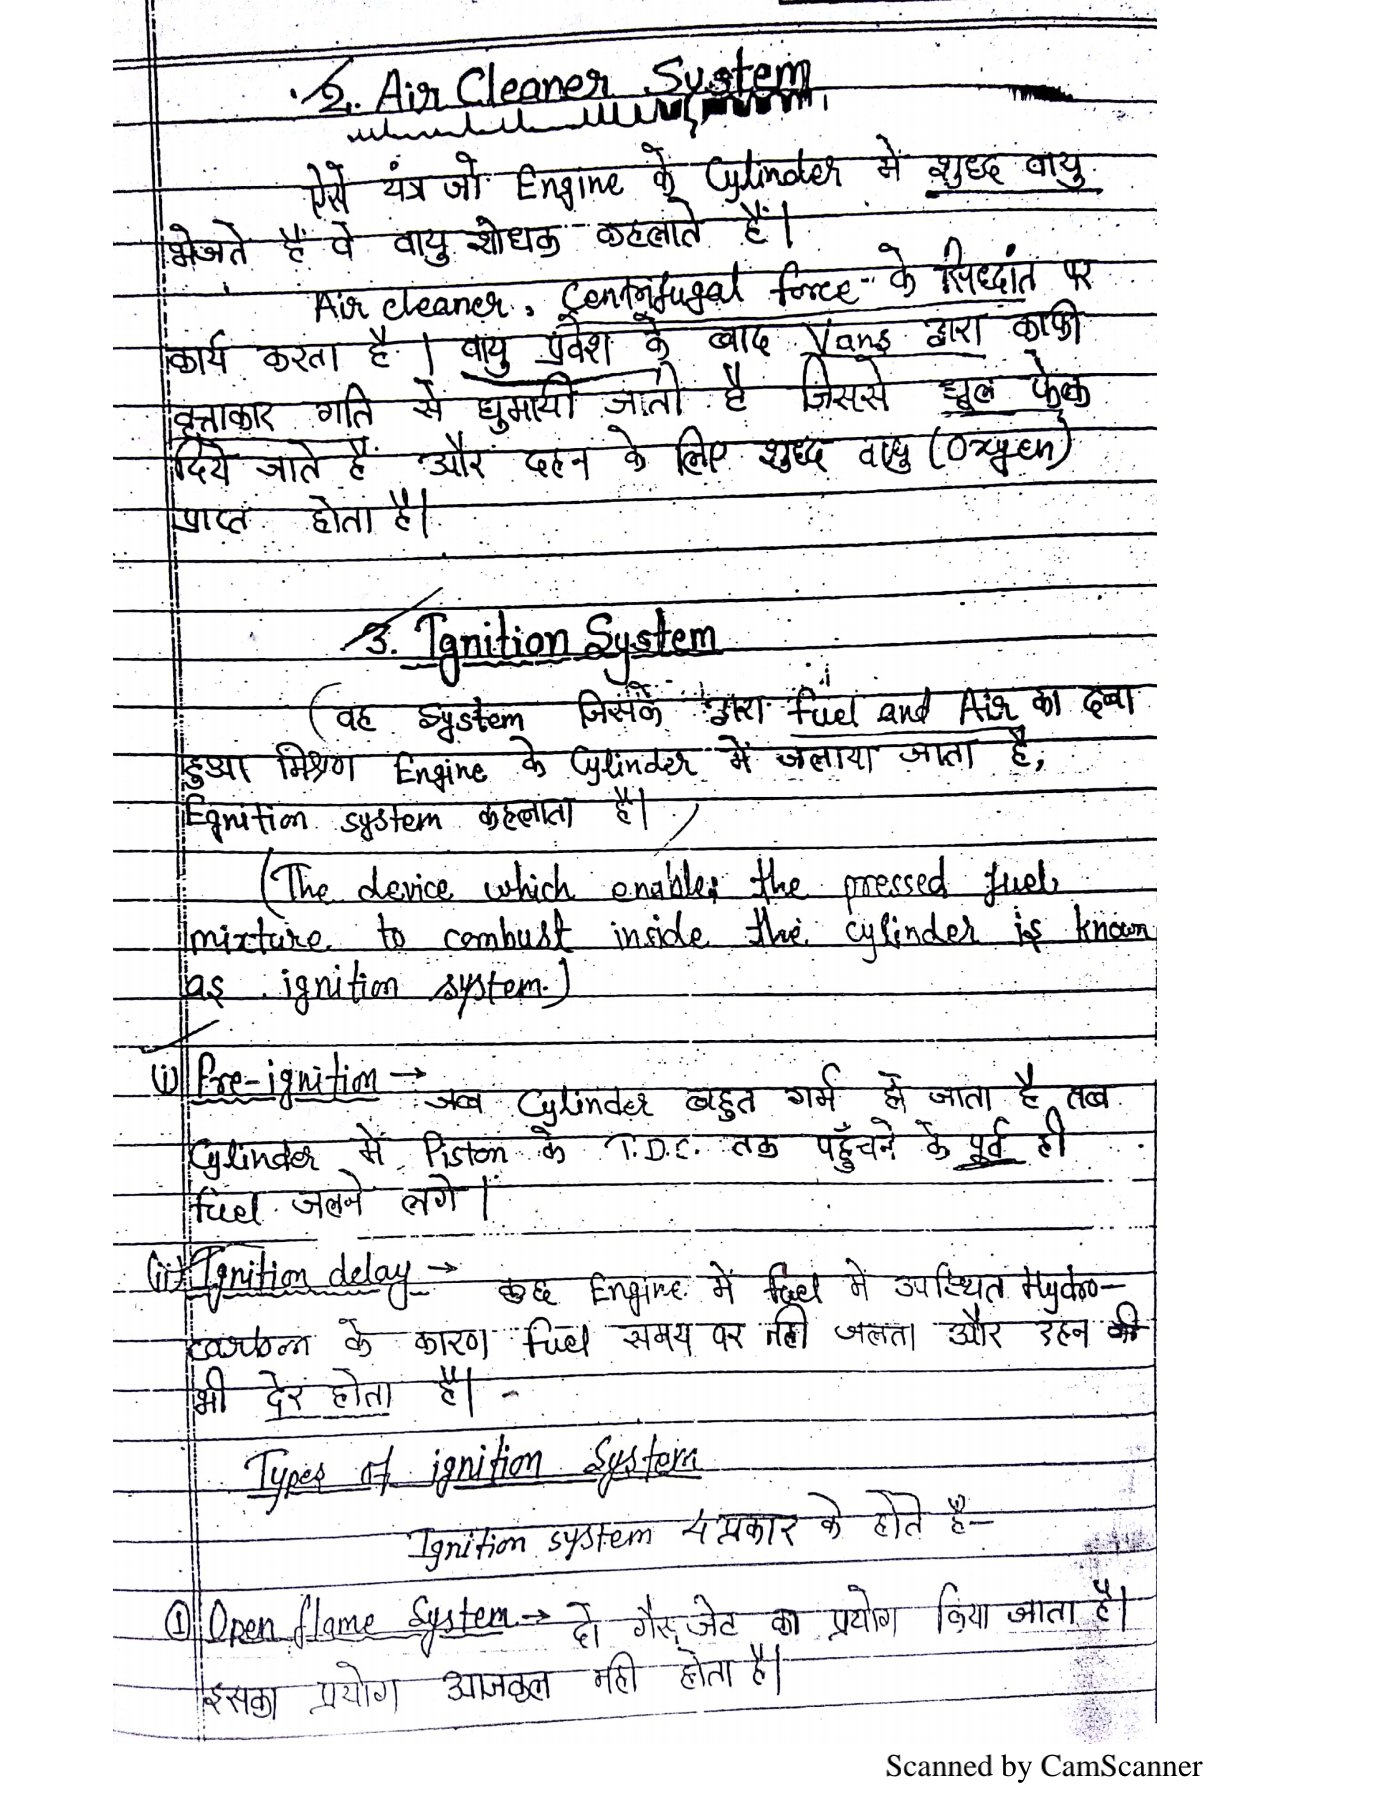 2. Air Cleaner System
ऐसे यंत्र जो Engine के Cylinder में शुध्द वायु
भेजते हैं वे वायु शोधक कहलाते हैं।
Air cleaner, Centrifugal force के सिध्दांत पर
कार्य करता है। वायु प्रवेश के बाद Vans द्वारा काफी
वृत्ताकार गति से घुमायी जाती है जिससे धूल फेक
दिये जाते हैं और दहन के लिए शुध्द वायु (Oxygen)
प्राप्त होता है।
3. Ignition System
(वह System जिसके द्वारा fuel and Air का दबा
हुआ मिश्रण Engine के Cylinder में जलाया जाता है,
Egnition system कहलाता है।)
(The device which enables the pressed fuel
mixture to combust inside the cylinder is known
as ignition system.)
(i) Pre-ignition → जब Cylinder बहुत गर्म हो जाता है तब
Cylinder में Piston के T.D.C. तक पहुँचने के पूर्व ही
fuel जलने लगे।
(ii) Ignition delay → कुछ Engine में fuel में उपस्थित Hydro-
carbon के कारण fuel समय पर नही जलता और दहन की
भी देर होता है।
Types of ignition System
Ignition system 4 प्रकार के होते है–
① Open flame System → दो गैस जेट का प्रयोग किया जाता है।
इसका प्रयोग आजकल नही होता है।
Scanned by CamScanner